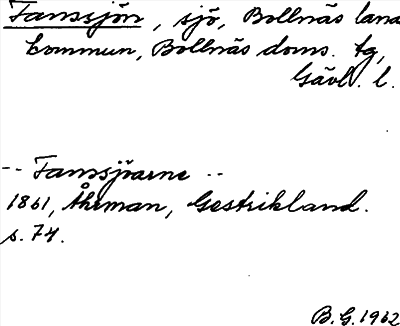 Tanssjön, sjö, Bollnäs lands
kommun, Bollnäs doms. tg,
Gävl. l.
-- Tanssjöarne --
1861, Åhrman, Gestrikland.
s. 74.
B.G. 1962